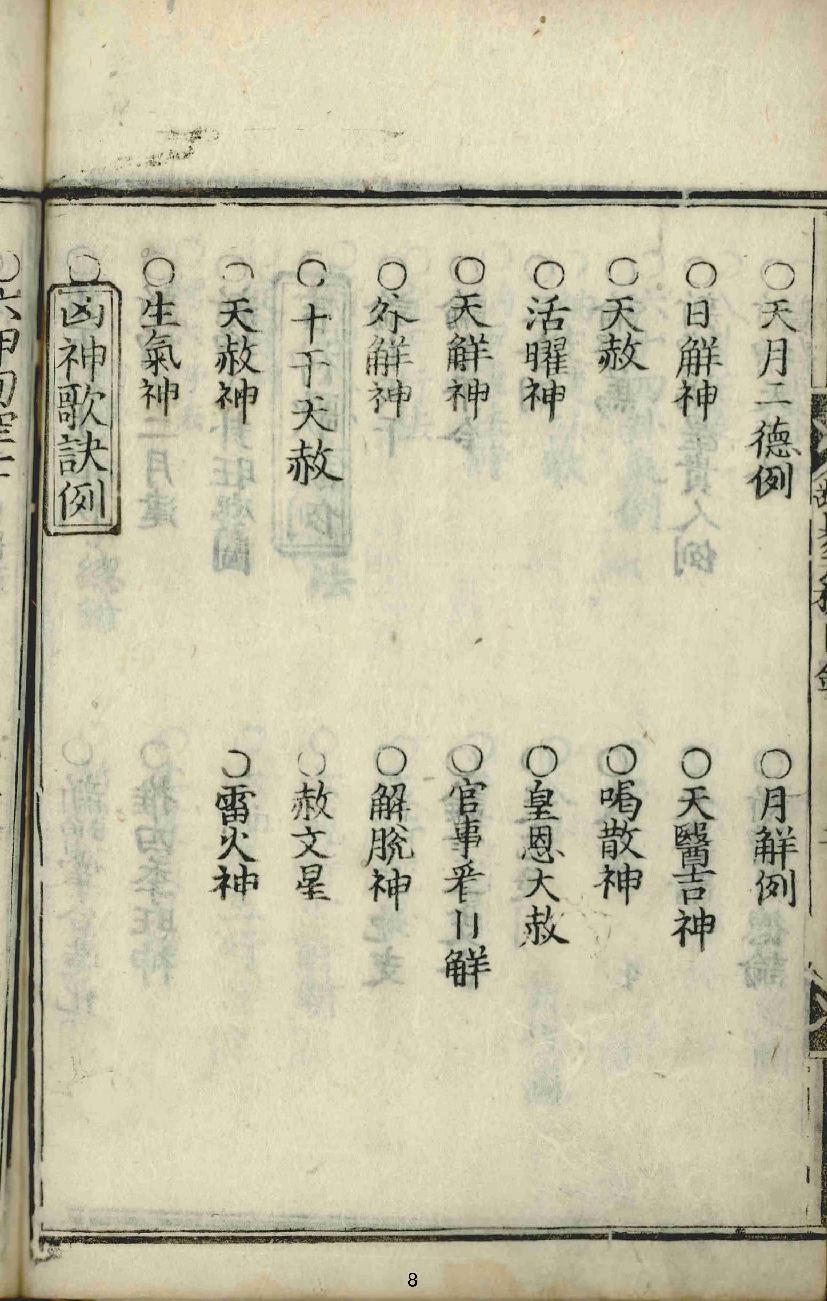 ○天月二德例 ○月解例
○日解神 ○天醫吉神
○天赦 ○喝散神
○活曜神 ○皇恩大赦
○天解神 ○官事看日解
○外解神 ○解脫神
○十干天赦 ○赦文星
○天赦神 ○雷火神
○生氣神
○凶神歌訣例
8